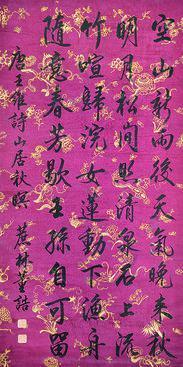 空山新雨後天氣晚来秋
明月松間照清泉石上流
竹喧歸浣女蓮動下漁舟
隨意春芳歇王孫自可留
唐王維詩山居秋暝 蕉林董誥